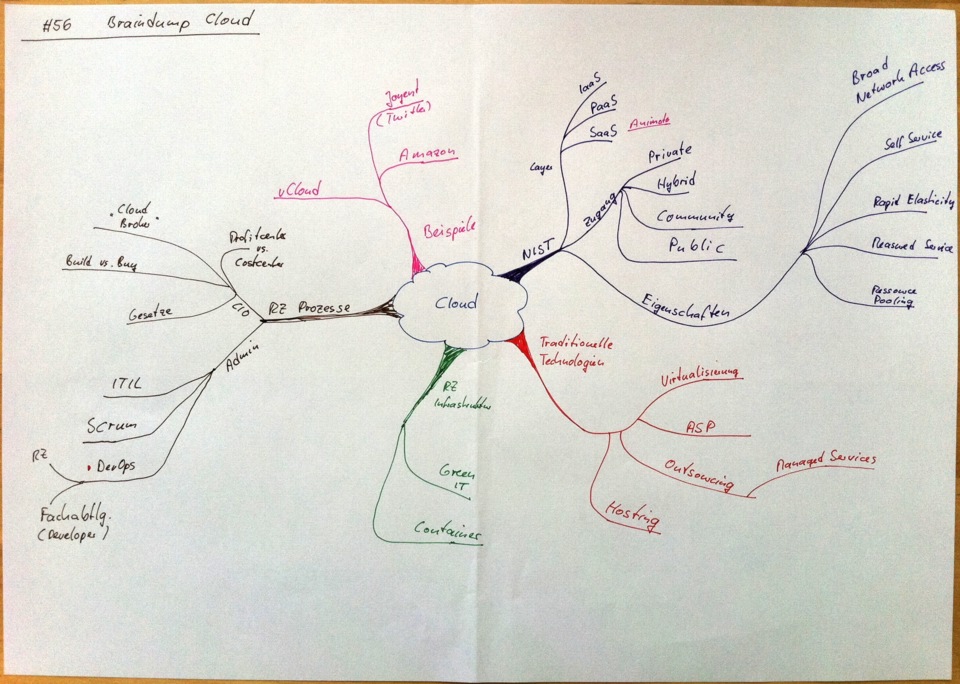 #56 Braindump Cloud
Cloud
NIST
Layer
IaaS
PaaS
SaaS
Animoto
Zugang
Private
Hybrid
Community
Public
Eigenschaften
Broad
Network Access
Self Service
Rapid Elasticity
Measured Service
Ressource
Pooling
Traditionelle
Technologien
Virtualisierung
ASP
Outsourcing
Managed Services
Hosting
RZ
Infrastruktur
Green
IT
Container
RZ Prozesse
CIO
Profitcenter
vs.
Costcenter
Cloud
Broker
Build vs. Buy
Gesetze
Admin
ITIL
Scrum
DevOps
RZ
Fachabtlg.
(Developer)
Beispiele
Joyent
(Twitter)
Amazon
vCloud